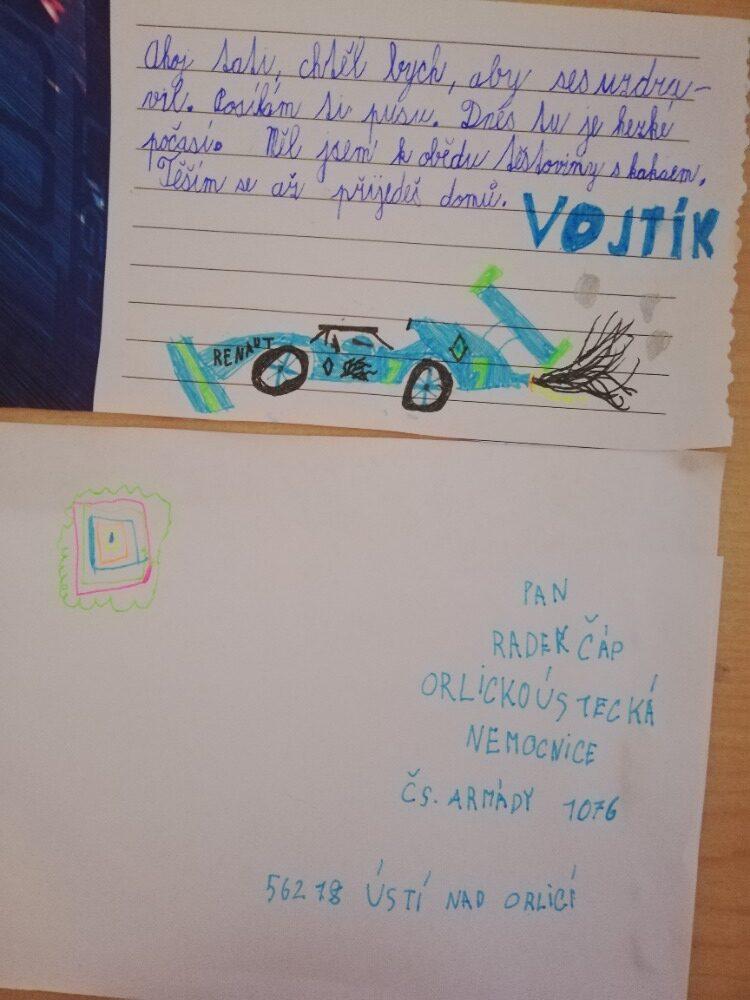 Ahoj tati, chtěl bych, aby ses uzdra-
vil. Posílám ti pusu. Dnes tu je hezké
počasí. Měl jsem k obědu těstoviny s kakaem.
Těším se až přijedeš domů.
VOJTÍK
RENAUT
7
7
PAN
RADEK ČÁP
ORLICKOÚSTECKÁ
NEMOCNICE
ČS. ARMÁDY 1076
562 18 ÚSTÍ NAD ORLICÍ